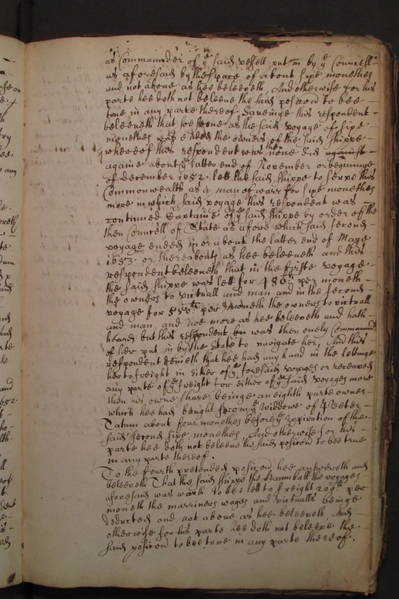 as Commaunder of ye said vessell put in by ye Councell
as aforesaid by the space of about sixe monethes
and not above as hee beleeveth. And otherwise for his
parte hee doth not beleeve the said position to bee
true in any parte thereof. Saveinge this respondent
beleeveth that upon the said voyage of sixe
monethes the owners of the said shippe
whereof this respondent was none did
againe about ye latter end of November or beginninge
of december 1652. lett the said shippe to serve this
Commonwealth as a man of warr for sixe monethes
more in which said voyage this respondent was
continued Captaine of ye said shippe by order of the
then Councell of State as afore which said second
voyage ended in or about the latter end of Maye
1653 or thereabouts as hee beleeveth and this
respondent beleeveth that in the firste voyage
the said shippe was lett for per moneth
the owners to victuall and man and in the second
voyage for per moneth the owners to victuall
and man and not more as hee beleeveth and hath
heard but this respondent was then onely Commander
of her put in by the State to navigate her, And this
respondent denieth that hee had any hand in the lettinge
her to freight in either of ye foresaid voyages or received
any parte of ye freight for either of ye said voyages more
then his owne share beinge an eighth parte owner
which hee had bought from ye widdowe of Peter
Tatum about four monethes before ye expiration of the
said second sixe monethes, And otherwise for his
parte hee doth not beleeve the said position to bee true
in any parte thereof.
To the fourth pretended position hee answereth and
beleeveth that the said shippe the voyages
aforesaid was worth to bee lett to freight per
moneth the marriners wages and victualls beinge
deducted and not above as hee beleeveth And
otherwise for his parte hee doth not beleeve the
said position to bee true in any parte thereof.